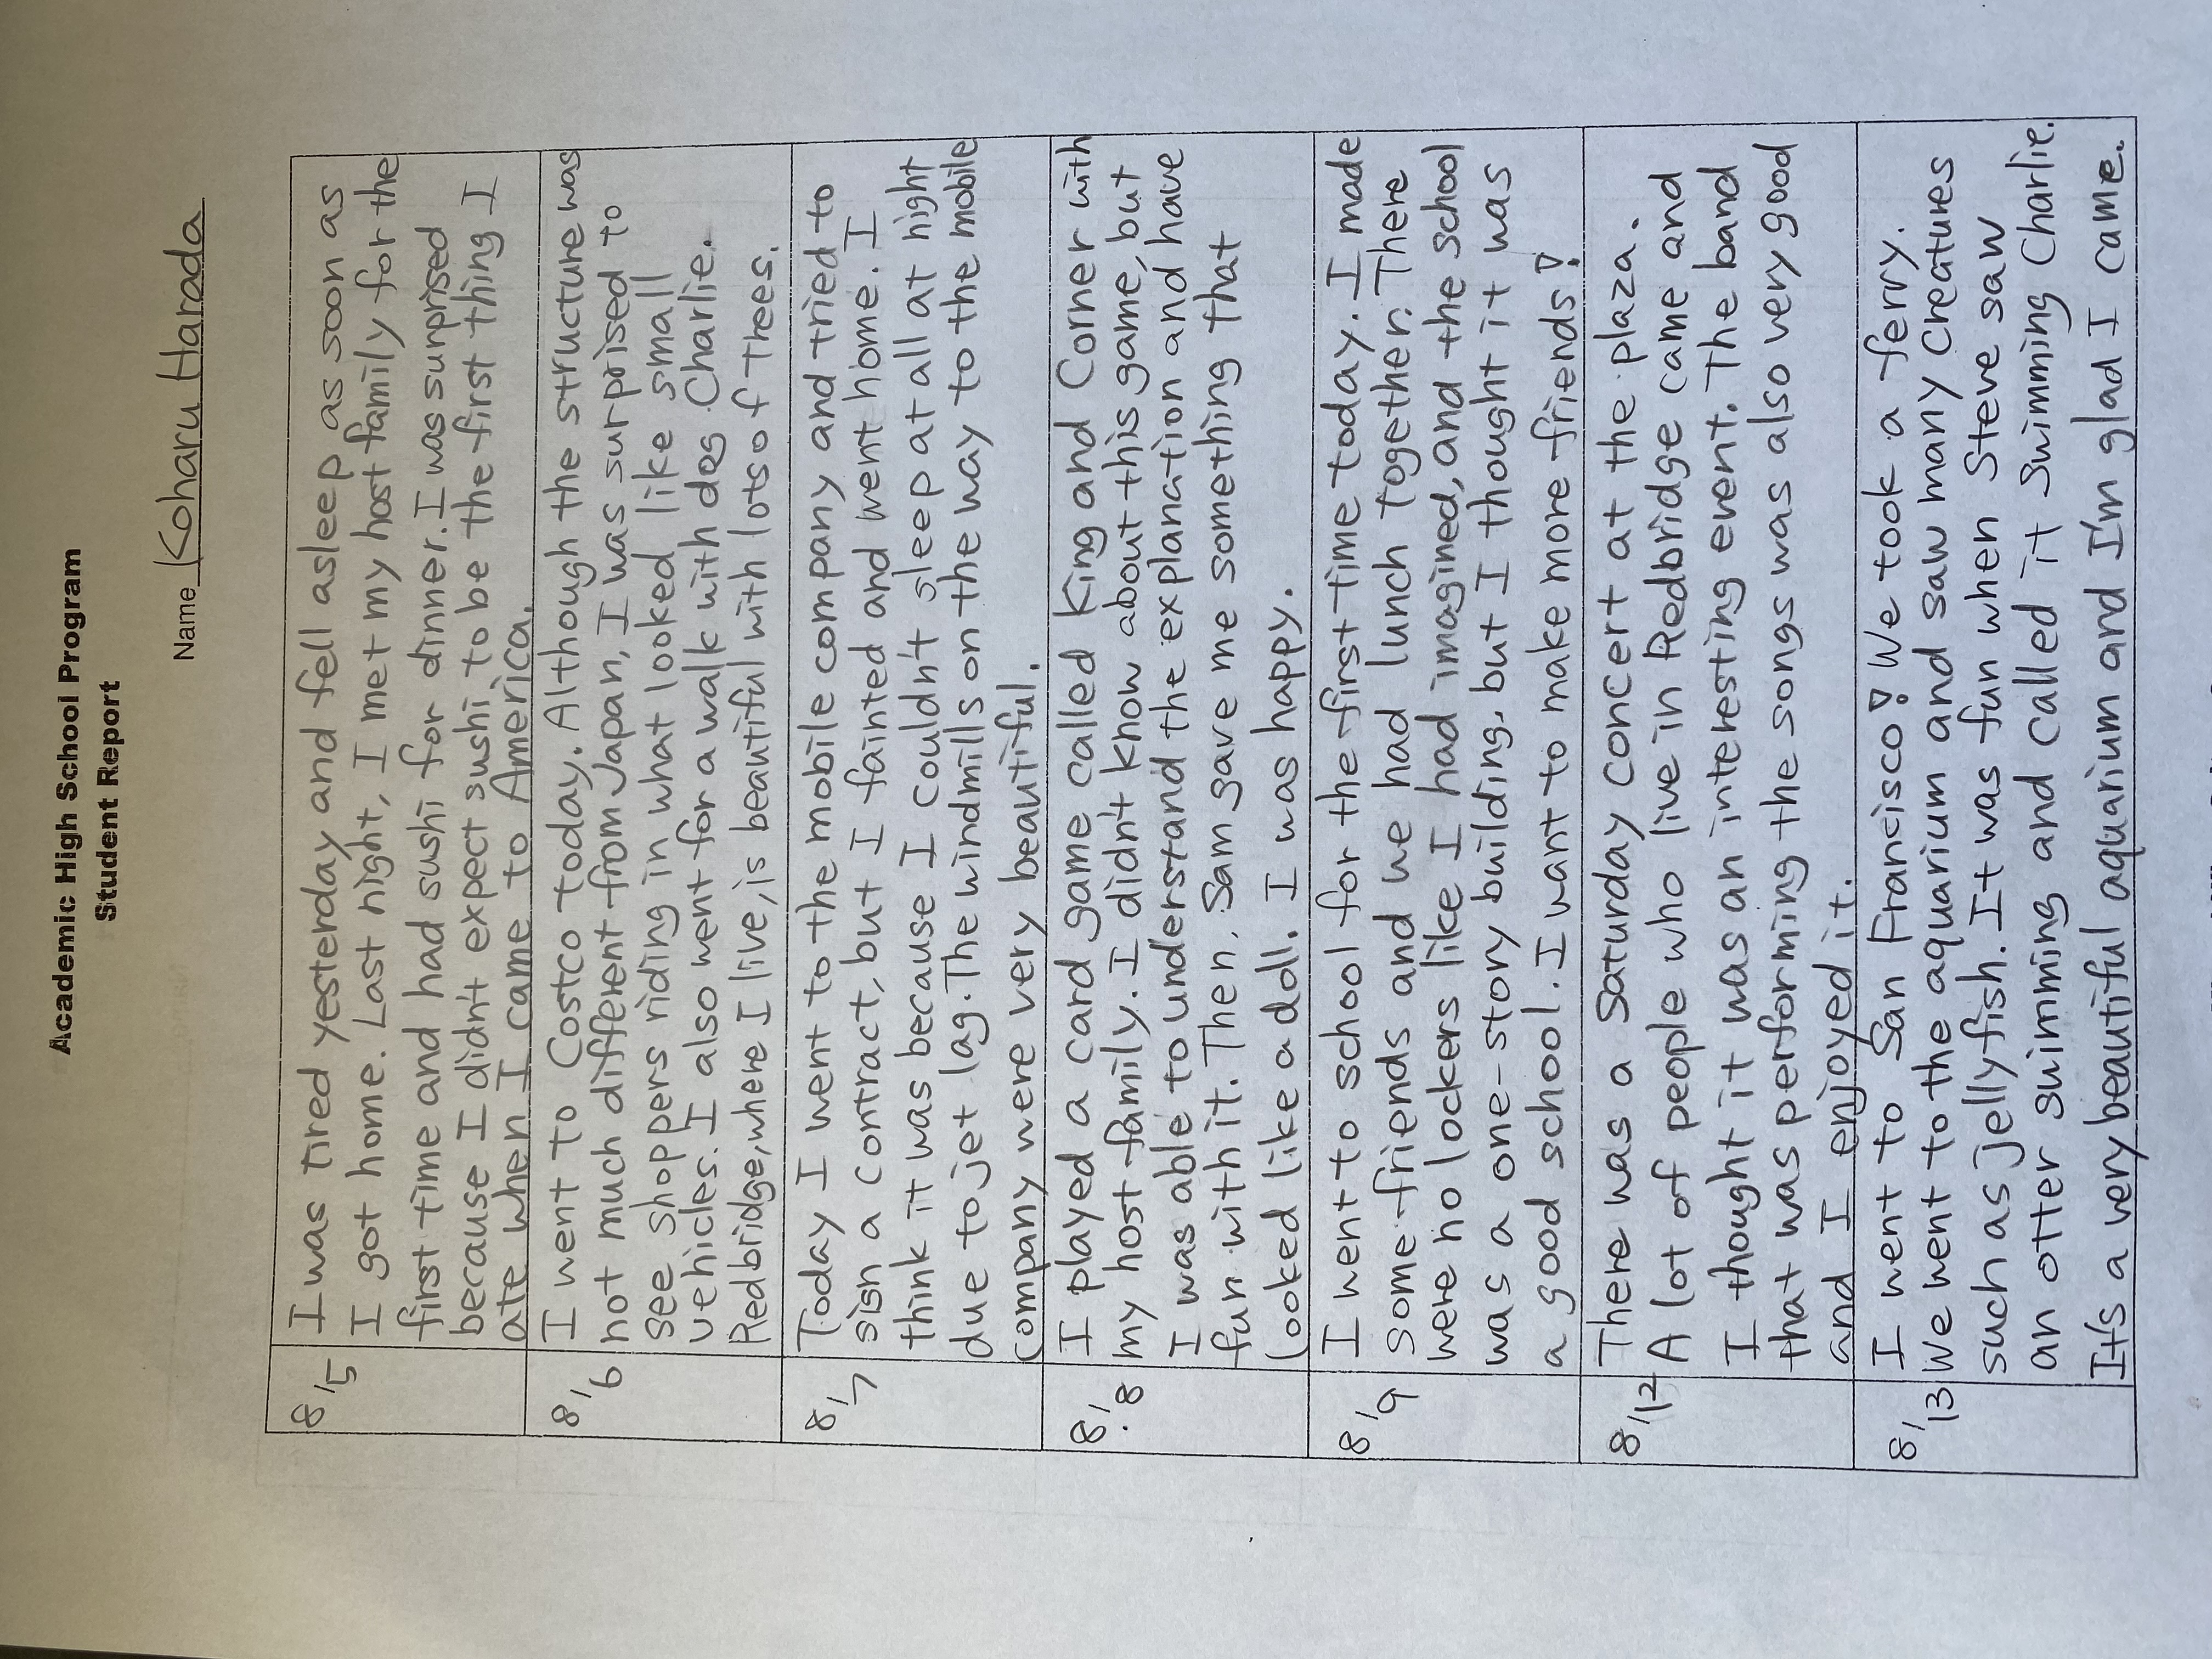 Academic High School Program
Student Report
Name Koharu Harada
8/5
I was tired yesterday and fell asleep as soon as
I got home. Last night, I met my host family for the
first time and had sushi for dinner. I was surprised
because I didn't expect sushi to be the first thing I
ate when I came to America.
8/6
I went to Costco today. Although the structure was
not much different from Japan, I was surprised to
see shoppers riding in what looked like small
vehicles. I also went for a walk with dog Charlie.
Redbridge, where I live, is beautiful with lots of trees.
8/7
Today I went to the mobile company and tried to
sign a contract, but I fainted and went home. I
think it was because I couldn't sleep at all at night
due to jet lag. The windmills on the way to the mobile
company were very beautiful.
8/8
I played a card game called King and Corner with
my host family. I didn't know about this game, but
I was able to understand the explanation and have
fun with it. Then, Sam gave me something that
looked like a doll. I was happy.
8/9
I went to school for the first time today. I made
some friends and we had lunch together. There
were no lockers like I had imagined, and the school
was a one-story building, but I thought it was
a good school. I want to make more friends!
8/12
There was a Saturday concert at the plaza.
A lot of people who live in Redbridge came and
I thought it was an interesting event. The band
that was performing the songs was also very good
and I enjoyed it.
8/13
I went to San Francisco! We took a ferry.
We went to the aquarium and saw many creatures
such as jellyfish. It was fun when Steve saw
an otter swimming and called it Swimming Charlie.
It's a very beautiful aquarium and I'm glad I came.